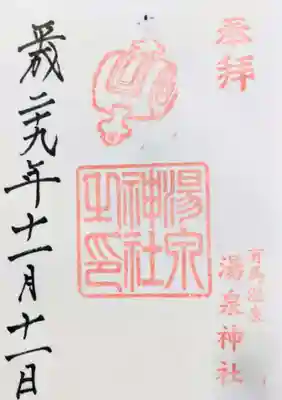 奉拝
有馬温泉
湯泉神社
湯泉
神社
之印
平成二十九年十一月十一日